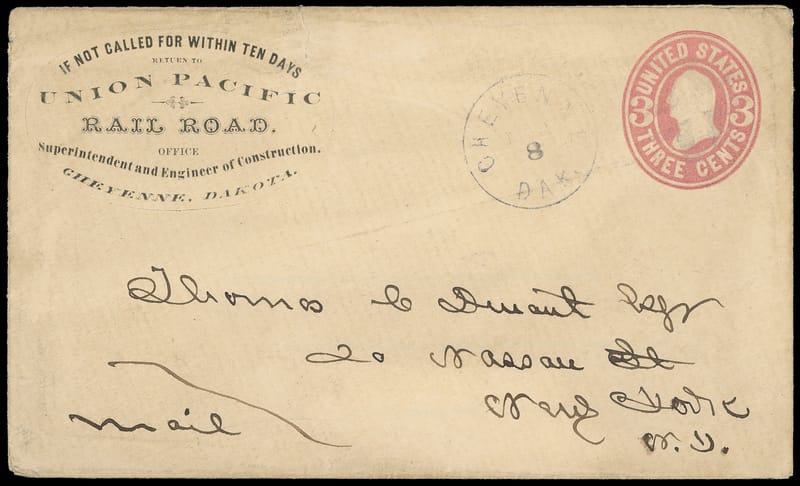 IF NOT CALLED FOR WITHIN TEN DAYS
RETURN TO
UNION PACIFIC
RAIL ROAD.
OFFICE
Superintendent and Engineer of Construction.
CHEYENNE, DAKOTA.
CHEYENN
8
DAK
UNITED STATES
3 3
THREE CENTS
Thomas C Durant Esqr
20 Nassau St
New York
N.Y.
mail